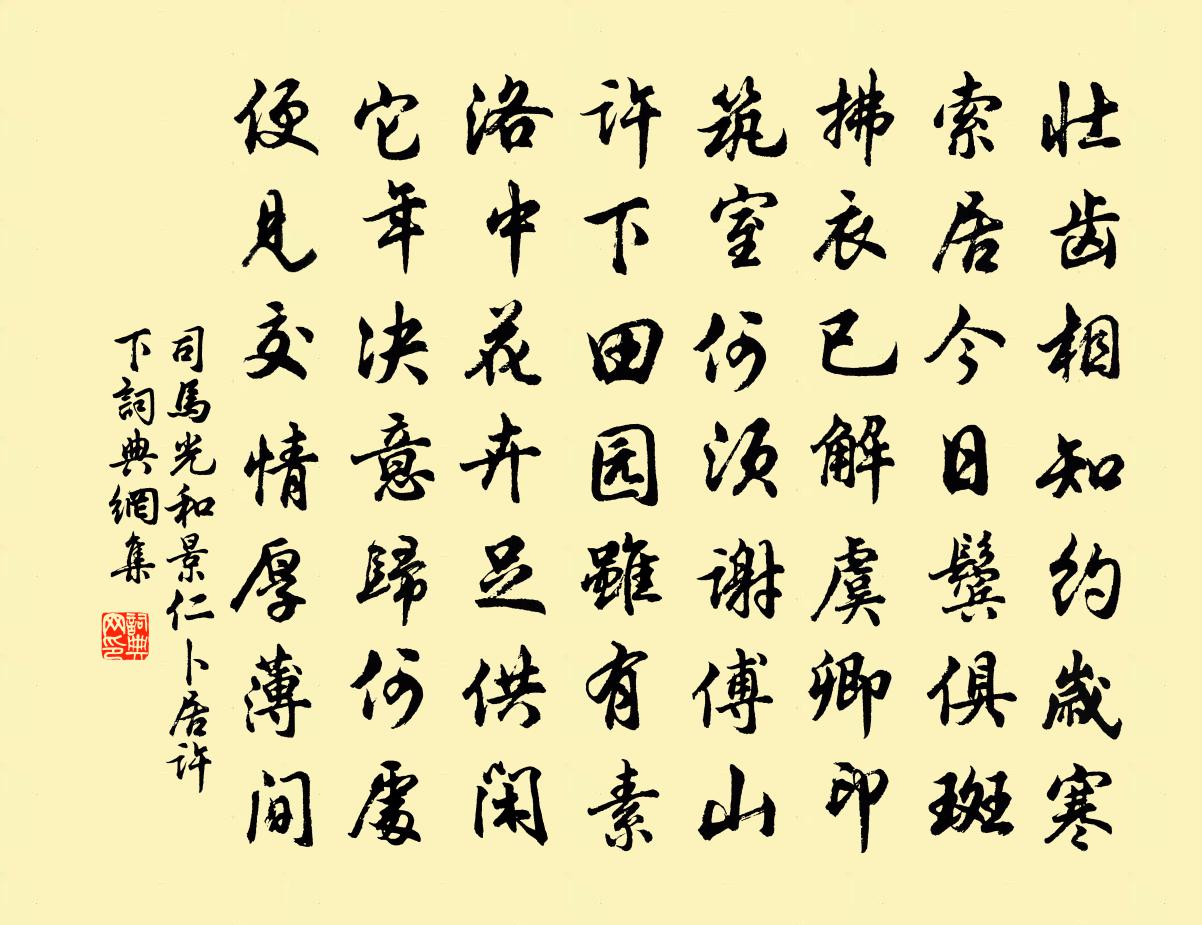 壮齿相知约歲寒
索居今日鬓俱斑
拂衣已解虞卿印
筑室何须谢傅山
许下田园雖有素
洛中花卉足供闲
它年决意歸何處
便見交情厚薄间
司馬光和景仁卜居许
下詞典網集
詞典
网印